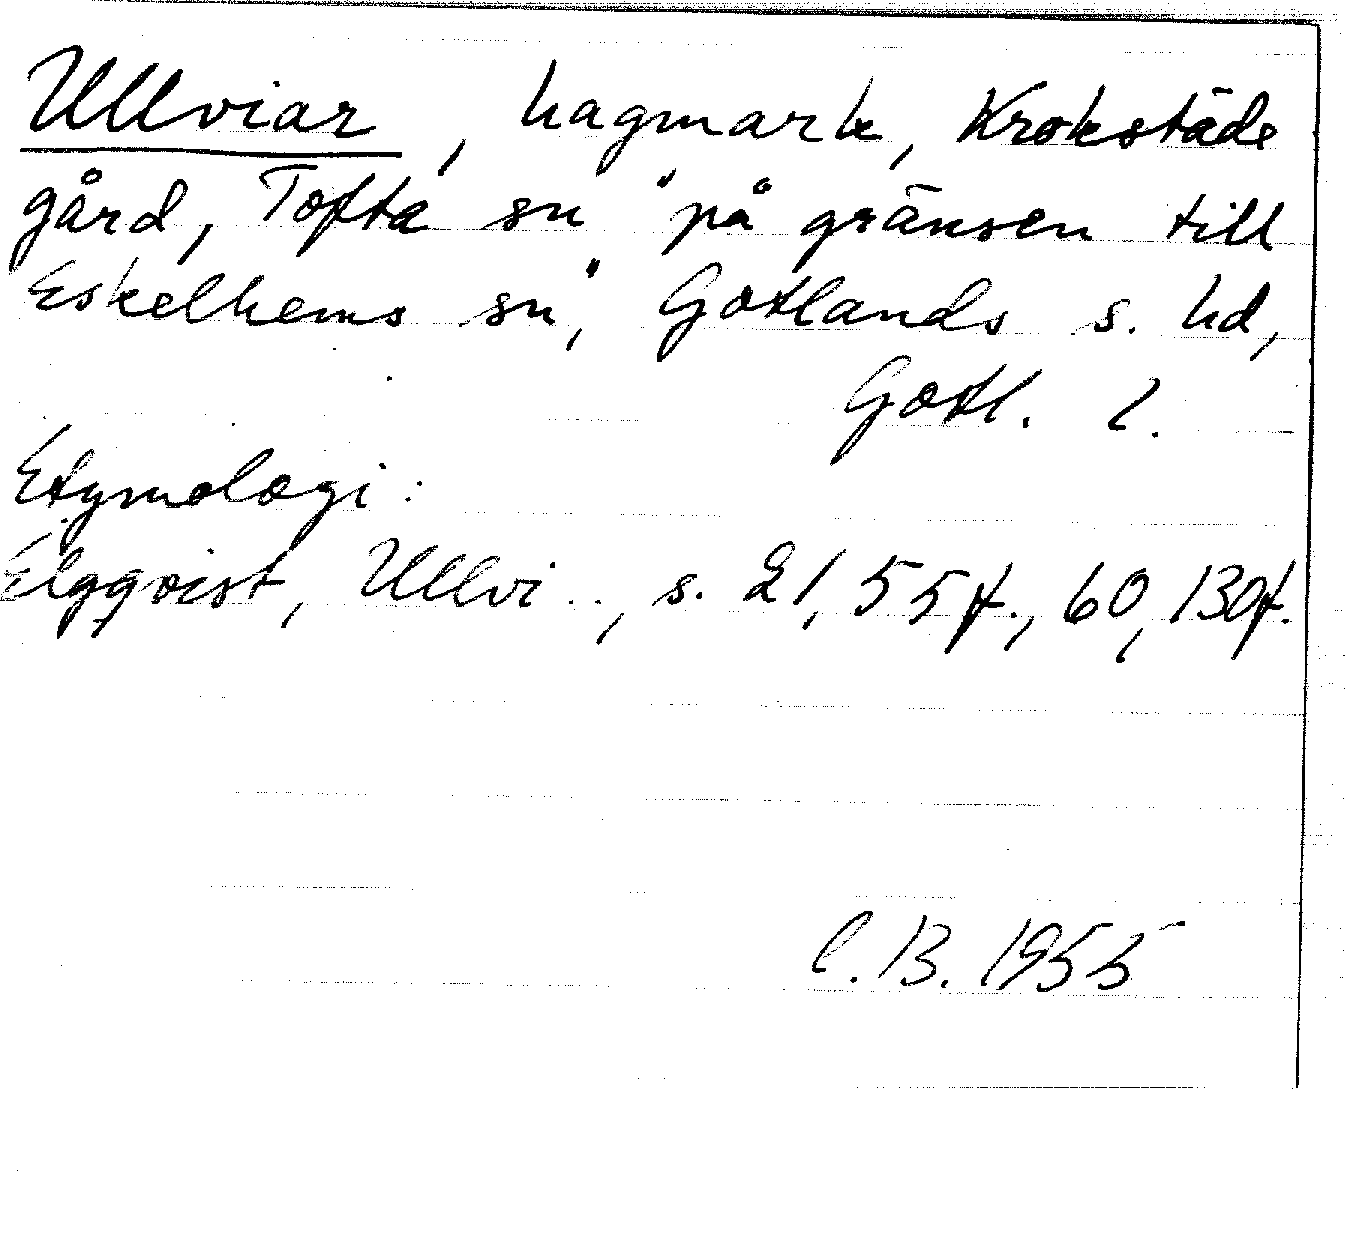 Ullviar, hagmark, Krokstäde
gård, Tofta sn "på gränsen till
Eskelhems sn", Gotlands s. hd,
Gotl. l.
Etymologi:
Elgqvist, Ullvi.., s. 21, 55f., 60, 130f.
C.B. 1955